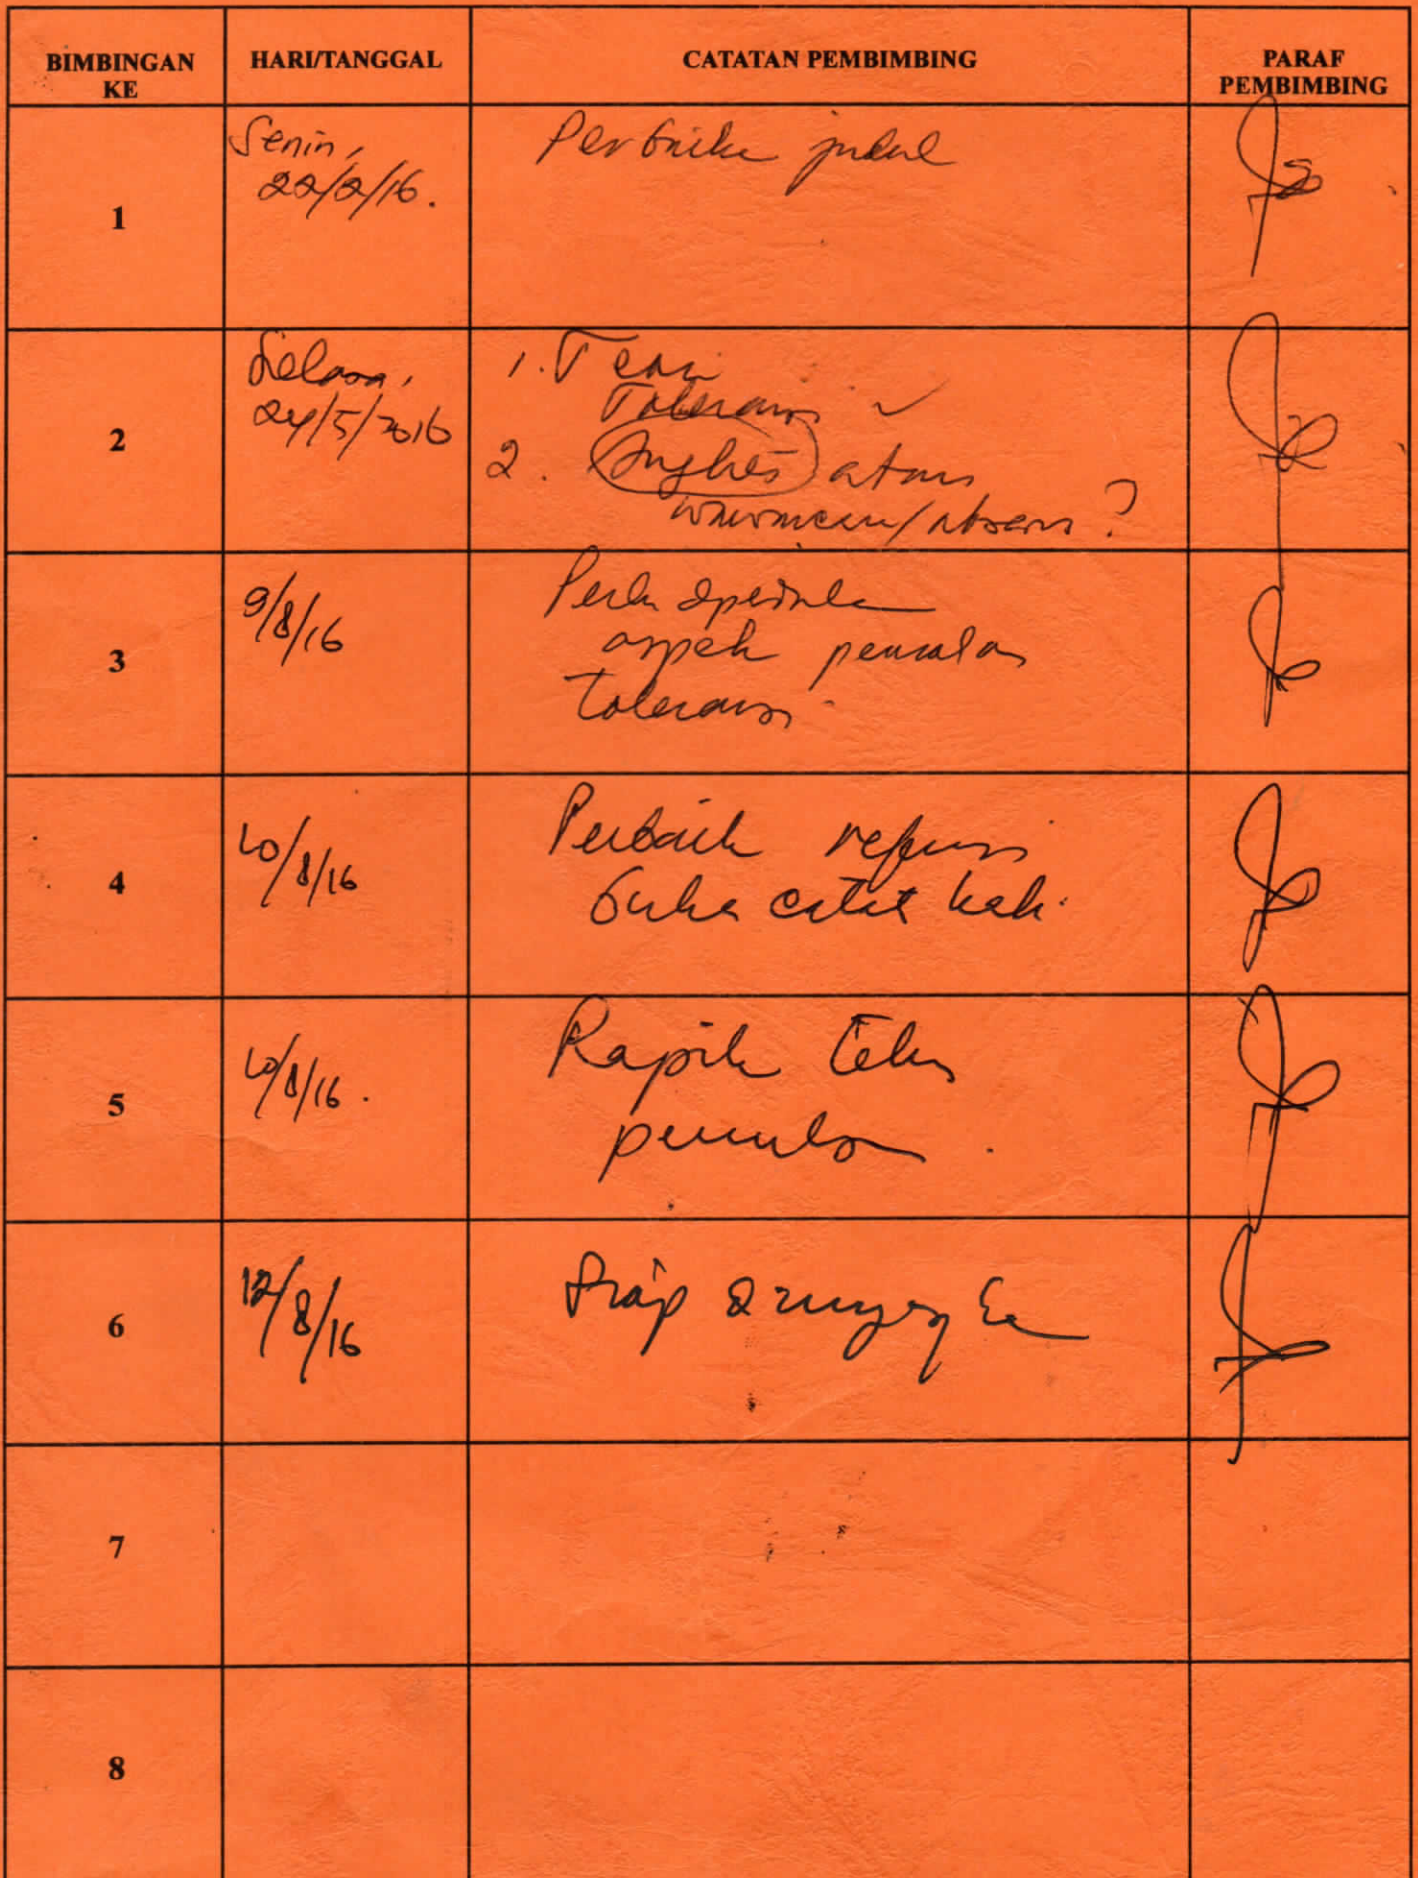 BIMBINGAN KE
HARI/TANGGAL
CATATAN PEMBIMBING
PARAF PEMBIMBING
1
Senin,
22/2/16.
Perbaiki judul
2
Selasa,
24/5/2016
1. Teori
Toleransi
2. Angket atau
wawancara/observ ?
3
9/8/16
Perlu
aspek
toleransi
4
10/8/16
Perbaiki
buku catat kaki.
5
10/8/16.
Rapik teks
penulisan.
6
12/8/16
Siap
7
8